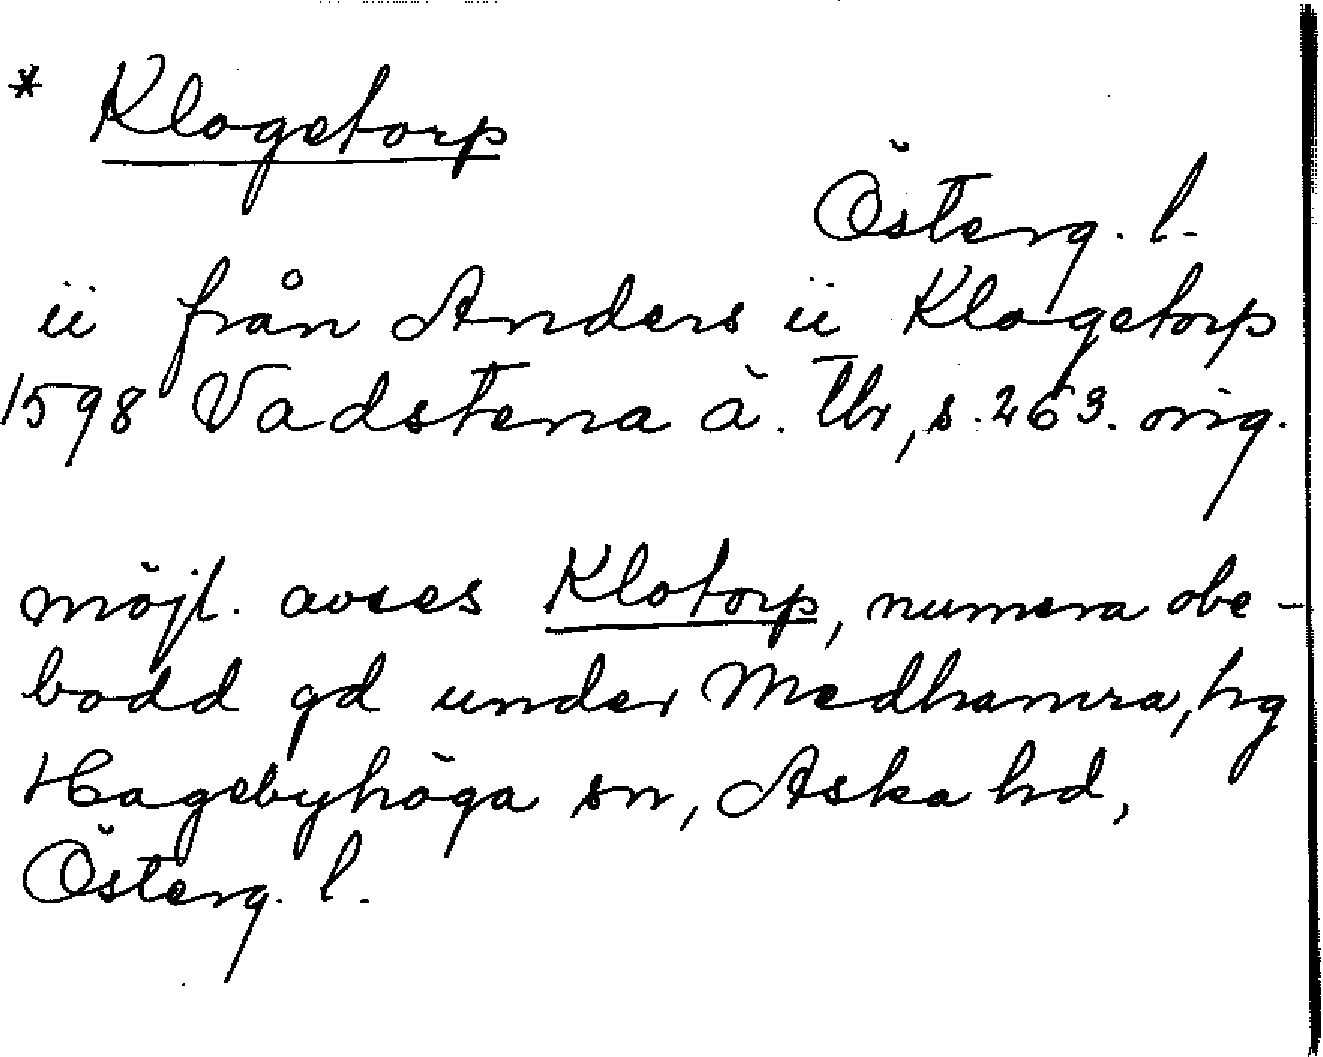 * Klogetorp
Österg. l.
ii från Anders ii Klogetorp
1598 Vadstena ä. Tbr, s. 263. orig.
möjl. avses Klotorp, numera obe-
bodd gd under Medhamra, hg
Hagebyhöga sn, Aska hd,
Österg. l.